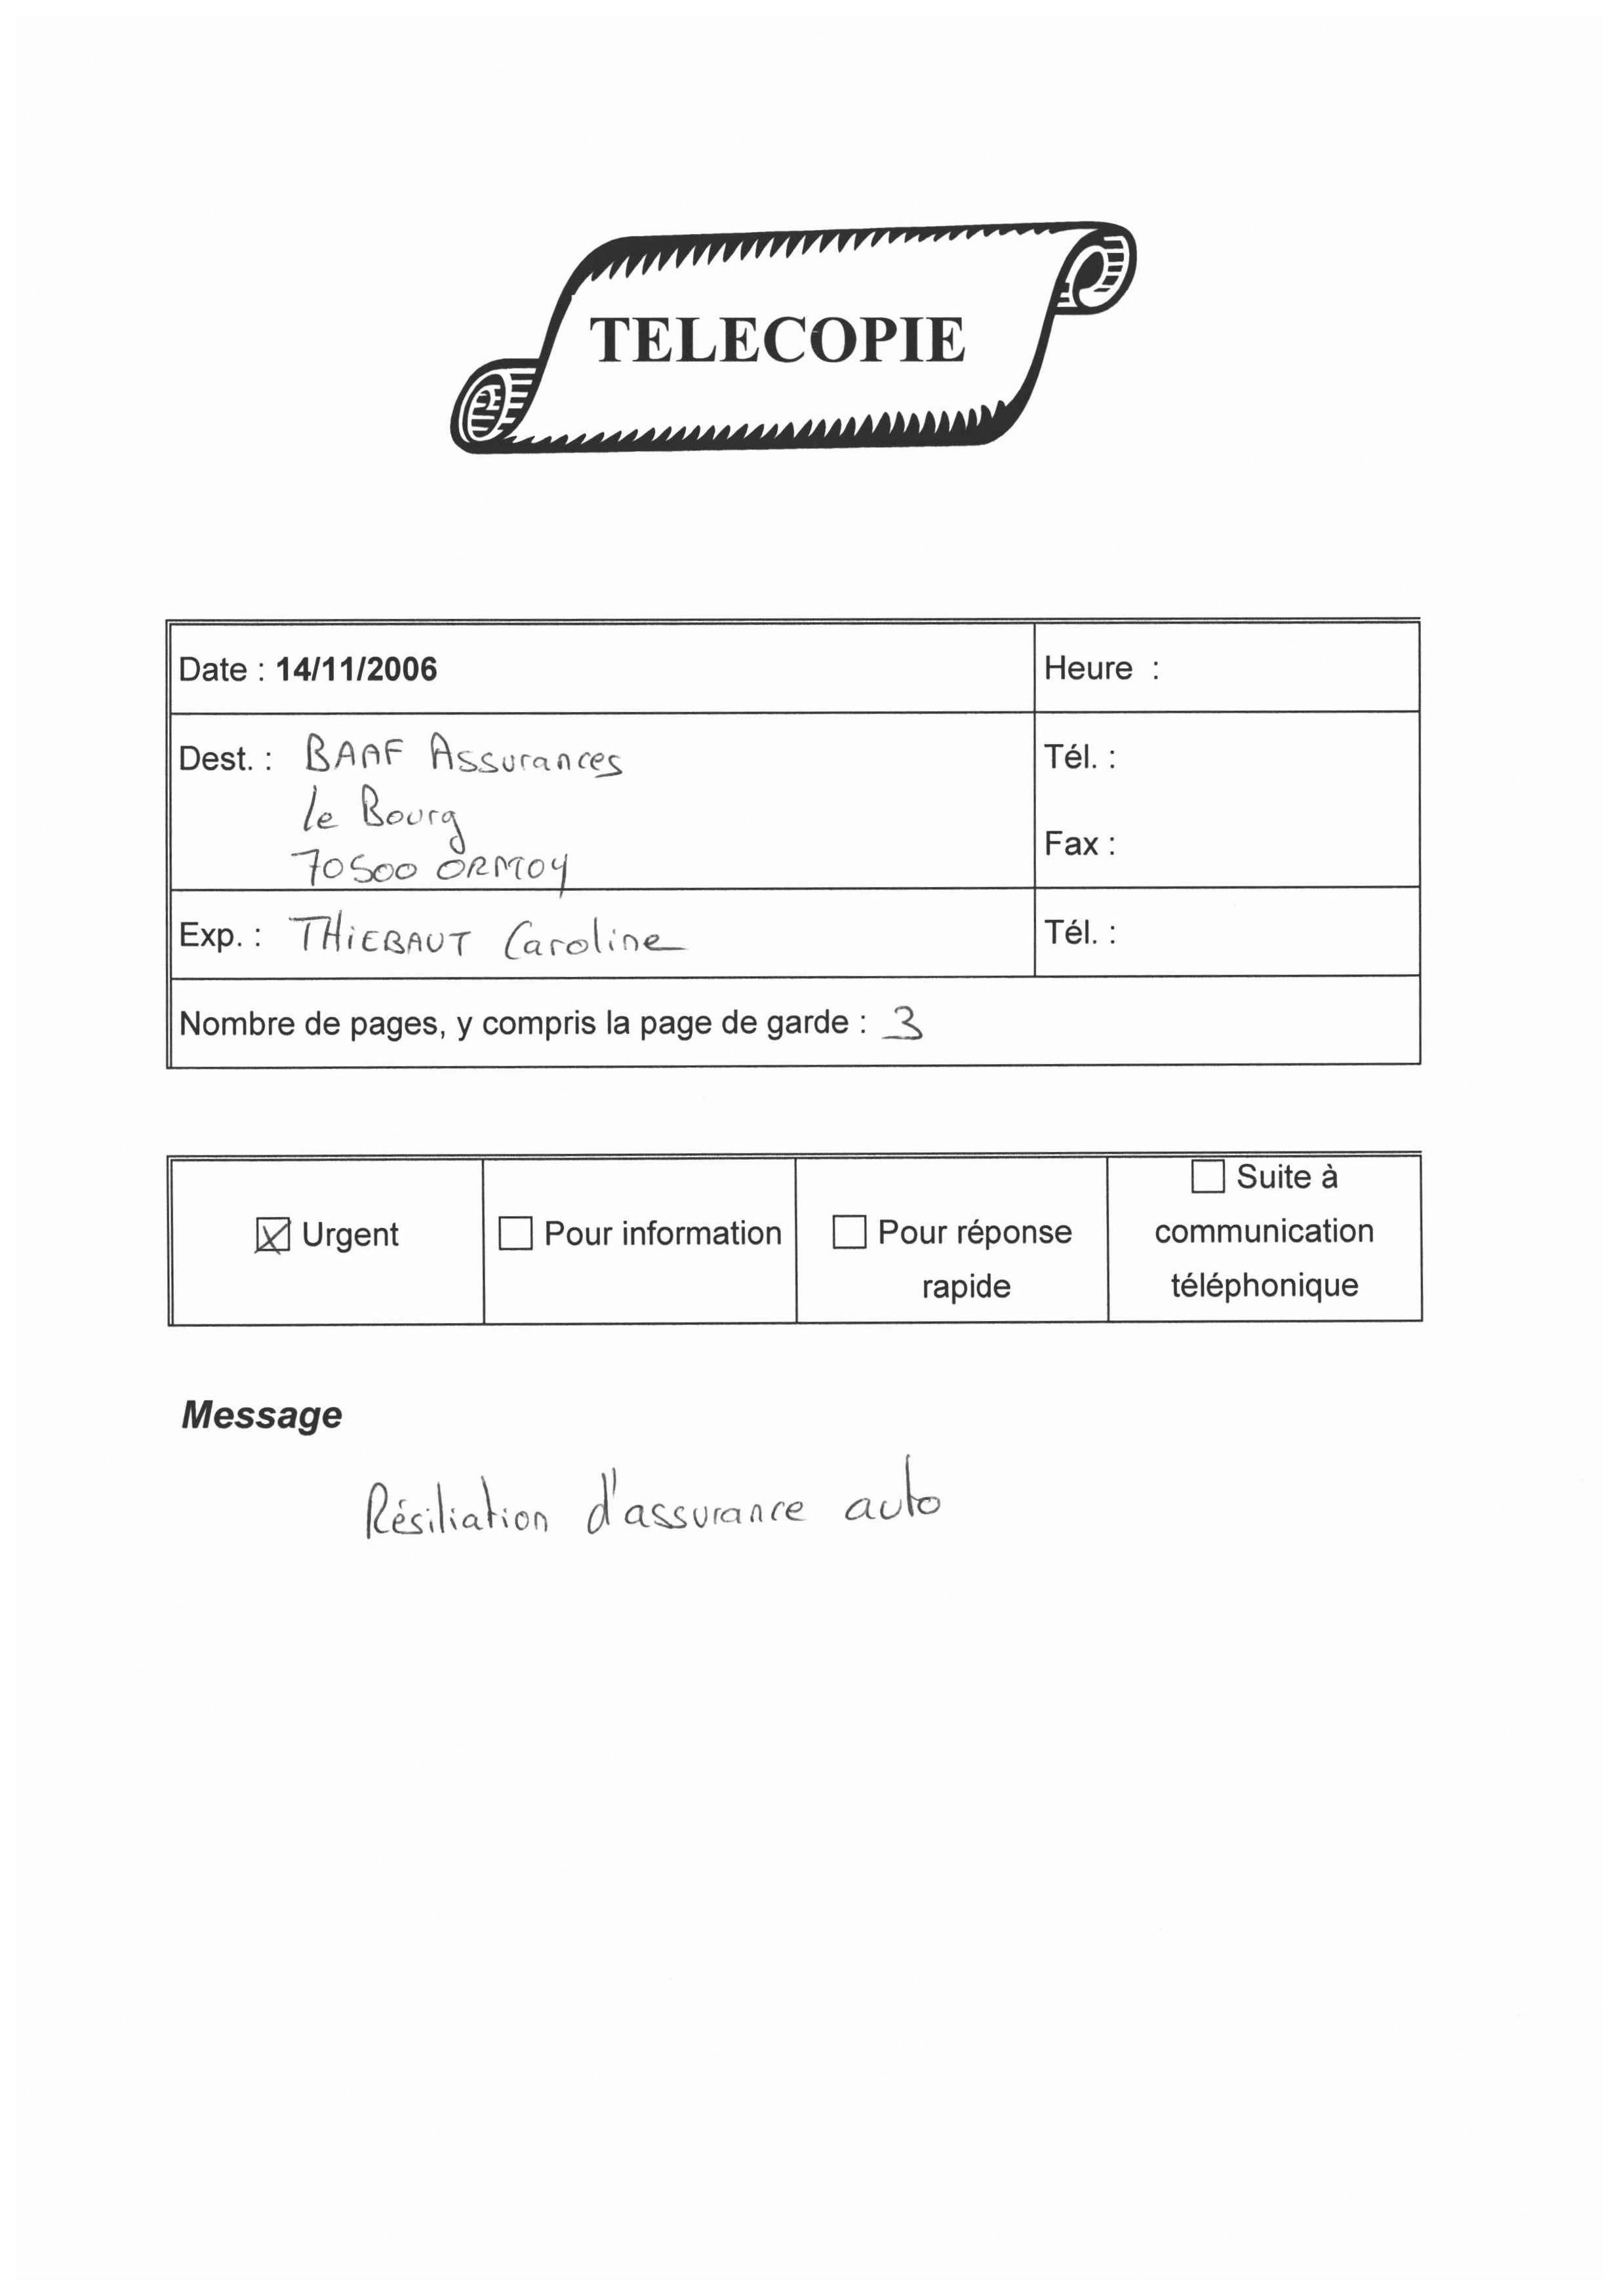 TELECOPIE
Date : 14/11/2006
Heure :
Dest. : BAAF Assurances
le Bourg
70500 ORMOY
Tél. :
Fax :
Exp. : THIEBAUT Caroline
Tél. :
Nombre de pages, y compris la page de garde : 3
Urgent
Pour information
Pour réponse
rapide
Suite à
communication
téléphonique
Message
Résiliation d'assurance auto